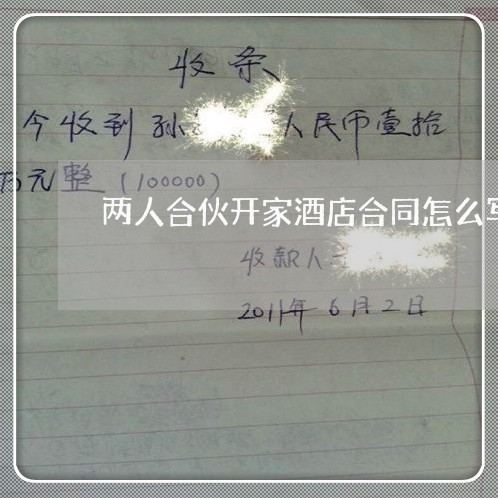 收条
今收到孙 人民币壹拾
万元整(100000)
两人合伙开家酒店合同怎么写
收款人
2011年6月2日